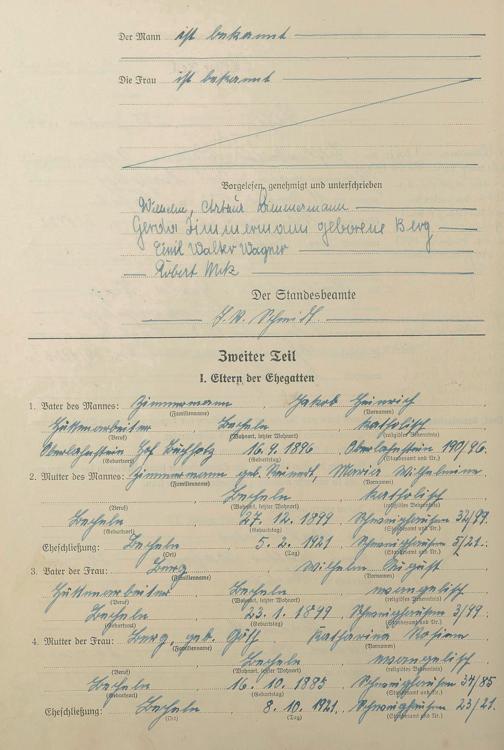 Der Mann ist bekannt
Die Frau ist bekannt
Vorgelesen, genehmigt und unterschrieben
Wilhelm, Artur Zimmermann
Gerda Zimmermann geborene Berg
Emil Walter Wagner
Robert
Der Standesbeamte
J. W. Schmidt
Zweiter Teil
I. Eltern der Ehegatten
1. Vater des Mannes: Zimmermann Jakob Heinrich
(Familienname) (Vornamen)
Hüttenarbeiter Becheln katholisch
(Beruf) (Wohnort, letzter Wohnort) (religiöses Bekenntnis)
Oberlahnstein Hof Buchholz 16.9.1896 Oberlahnstein 190/96.
(Geburtsort) (Geburtstag) (Standesamt und Nr.)
2. Mutter des Mannes: Zimmermann geb. Maria Wilhelmine
(Familienname) (Vornamen)
Becheln katholisch
(Beruf) (Wohnort, letzter Wohnort) (religiöses Bekenntnis)
Becheln 27.12.1899 Schweighausen 34/99.
(Ort) (Geburtstag) (Standesamt und Nr.)
Eheschließung: Becheln 5.2.1921 Schweighausen 5/21.
(Ort) (Tag) (Standesamt und Nr.)
3. Vater der Frau: Berg Wilhelm August
(Familienname) (Vornamen)
Hüttenarbeiter Becheln evangelisch
(Beruf) (Wohnort, letzter Wohnort) (religiöses Bekenntnis)
Becheln 23.1.1899 Schweighausen 3/99.
(Geburtsort) (Geburtstag) (Standesamt und Nr.)
4. Mutter der Frau: Berg, geb. Katharina
(Familienname) (Vornamen)
Becheln evangelisch
(Beruf) (Wohnort, letzter Wohnort) (religiöses Bekenntnis)
Becheln 16.10.1885 Schweighausen 34/85
(Geburtsort) (Geburtstag) (Standesamt und Nr.)
Eheschließung: Becheln 8.10.1921. Schweighausen 23/21.
(Ort) (Tag) (Standesamt und Nr.)